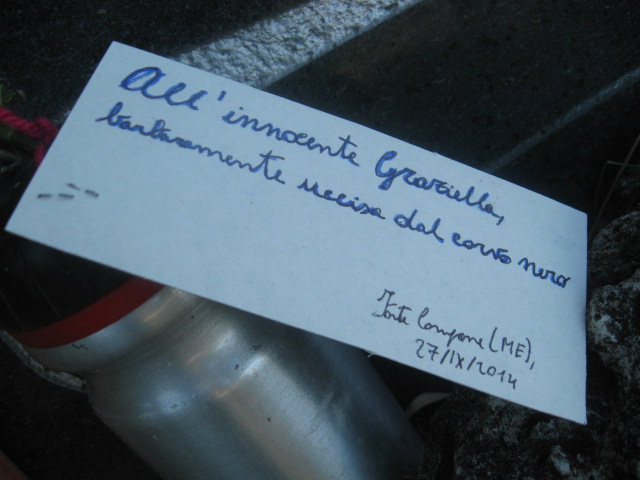 All'innocente Graziella,
barbaramente uccisa dal corvo nero
Forte Campone (ME),
27/IX/2014